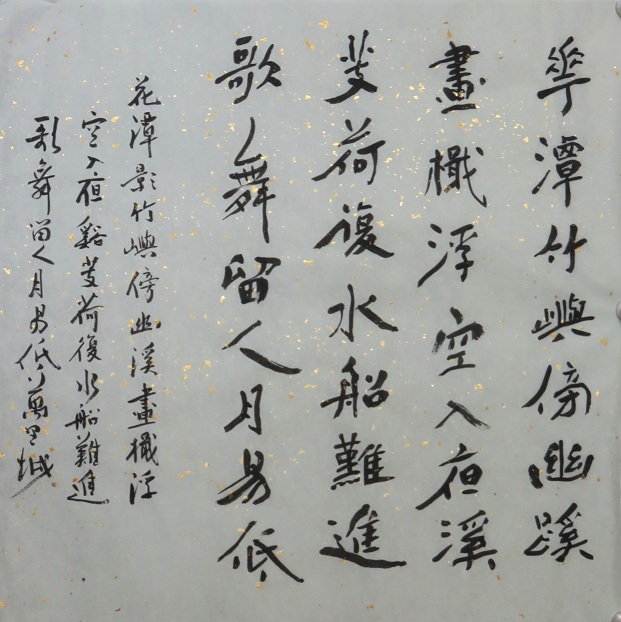 華潭竹嶼傍幽蹊
畫檝浮空入夜溪
芰荷復水船難進
歌舞留人月易低
花潭影竹嶼傍幽溪畫檝浮
空入夜谿芰荷復水船難進
歌舞留人月易低萬里城